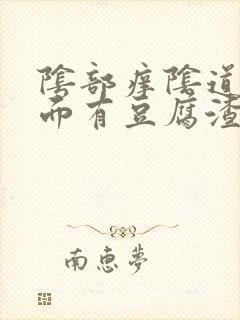 陰部痒陰道
而有豆腐渣
南惠夢